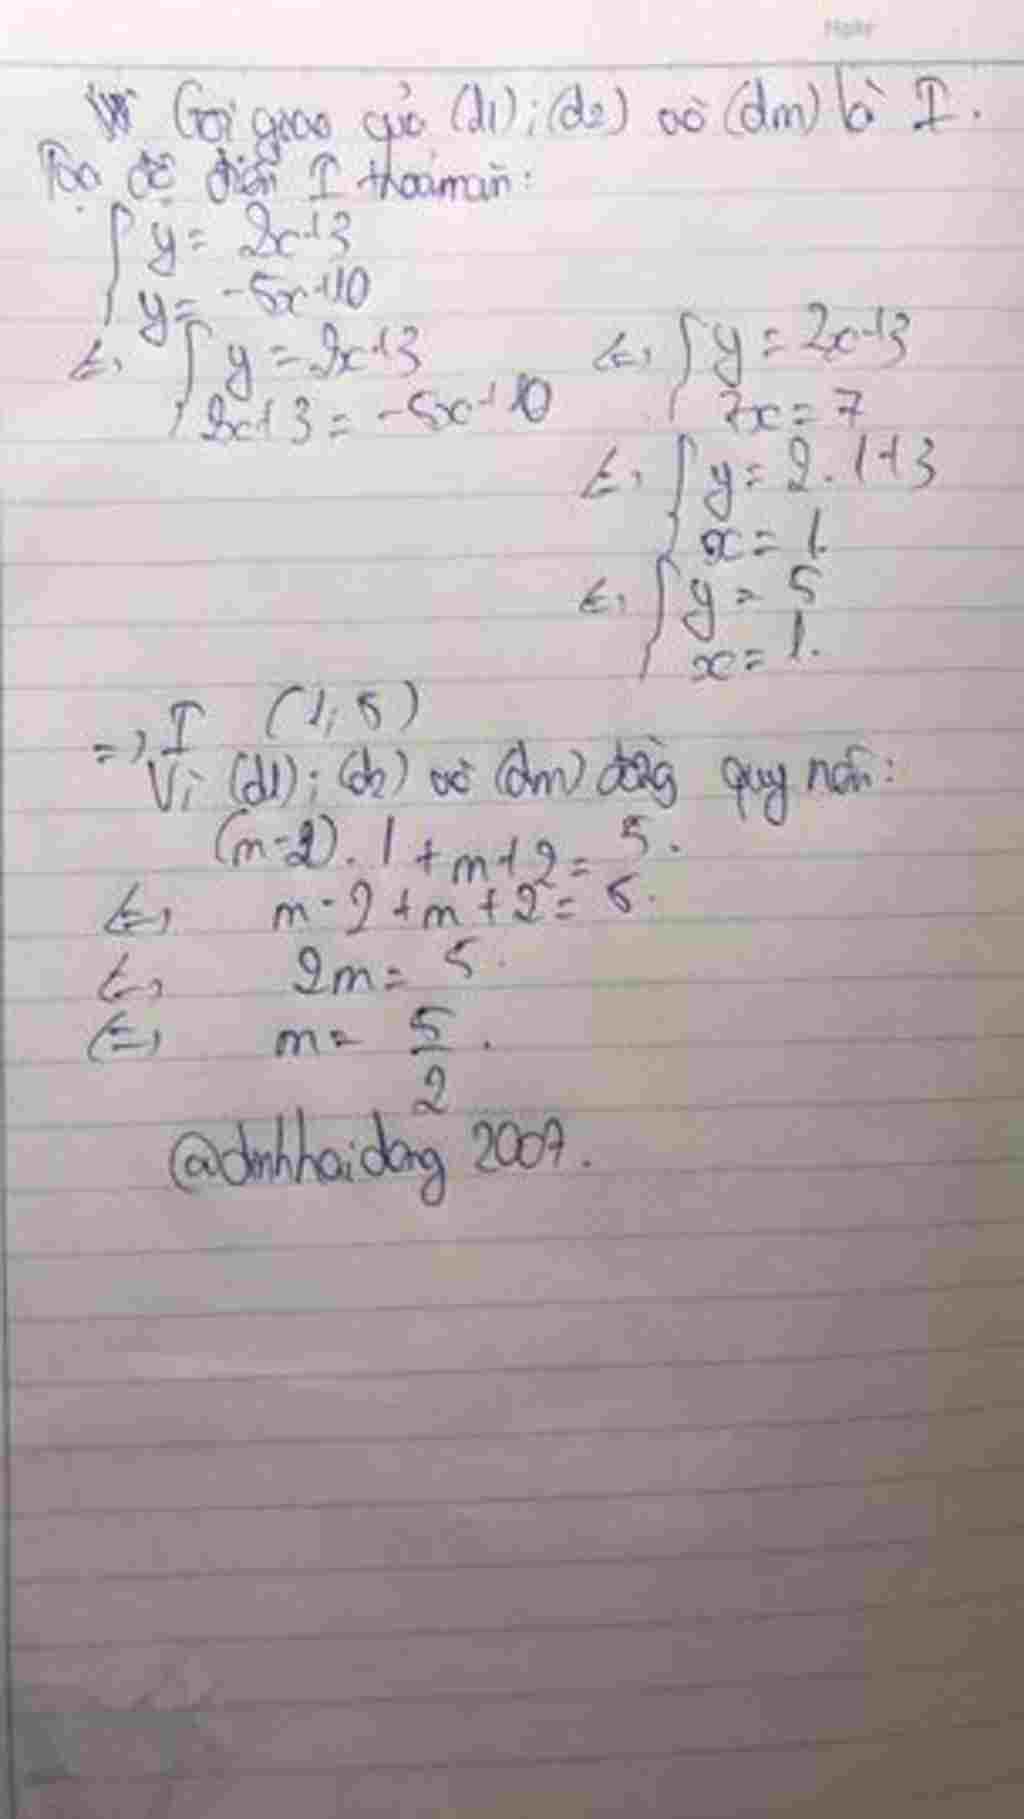 Ngày
Gọi giao của (d1); (d2) và (dm) là I.
Tọa độ điểm I thỏa mãn:
{ y = 2x+3
y = -5x+10
<=> { y = 2x+3
2x+3 = -5x+10
<=> { y = 2x+3
7x = 7
<=> { y = 2.1+3
x = 1.
<=> { y = 5
x = 1.
=> I (1; 5)
Vì (d1); (d2) và (dm) đồng quy nên:
(m-2).1 + m+2 = 5.
<=> m-2+m+2 = 5.
<=> 2m = 5.
<=> m = 5/2.
@dinhhaidang 2007.